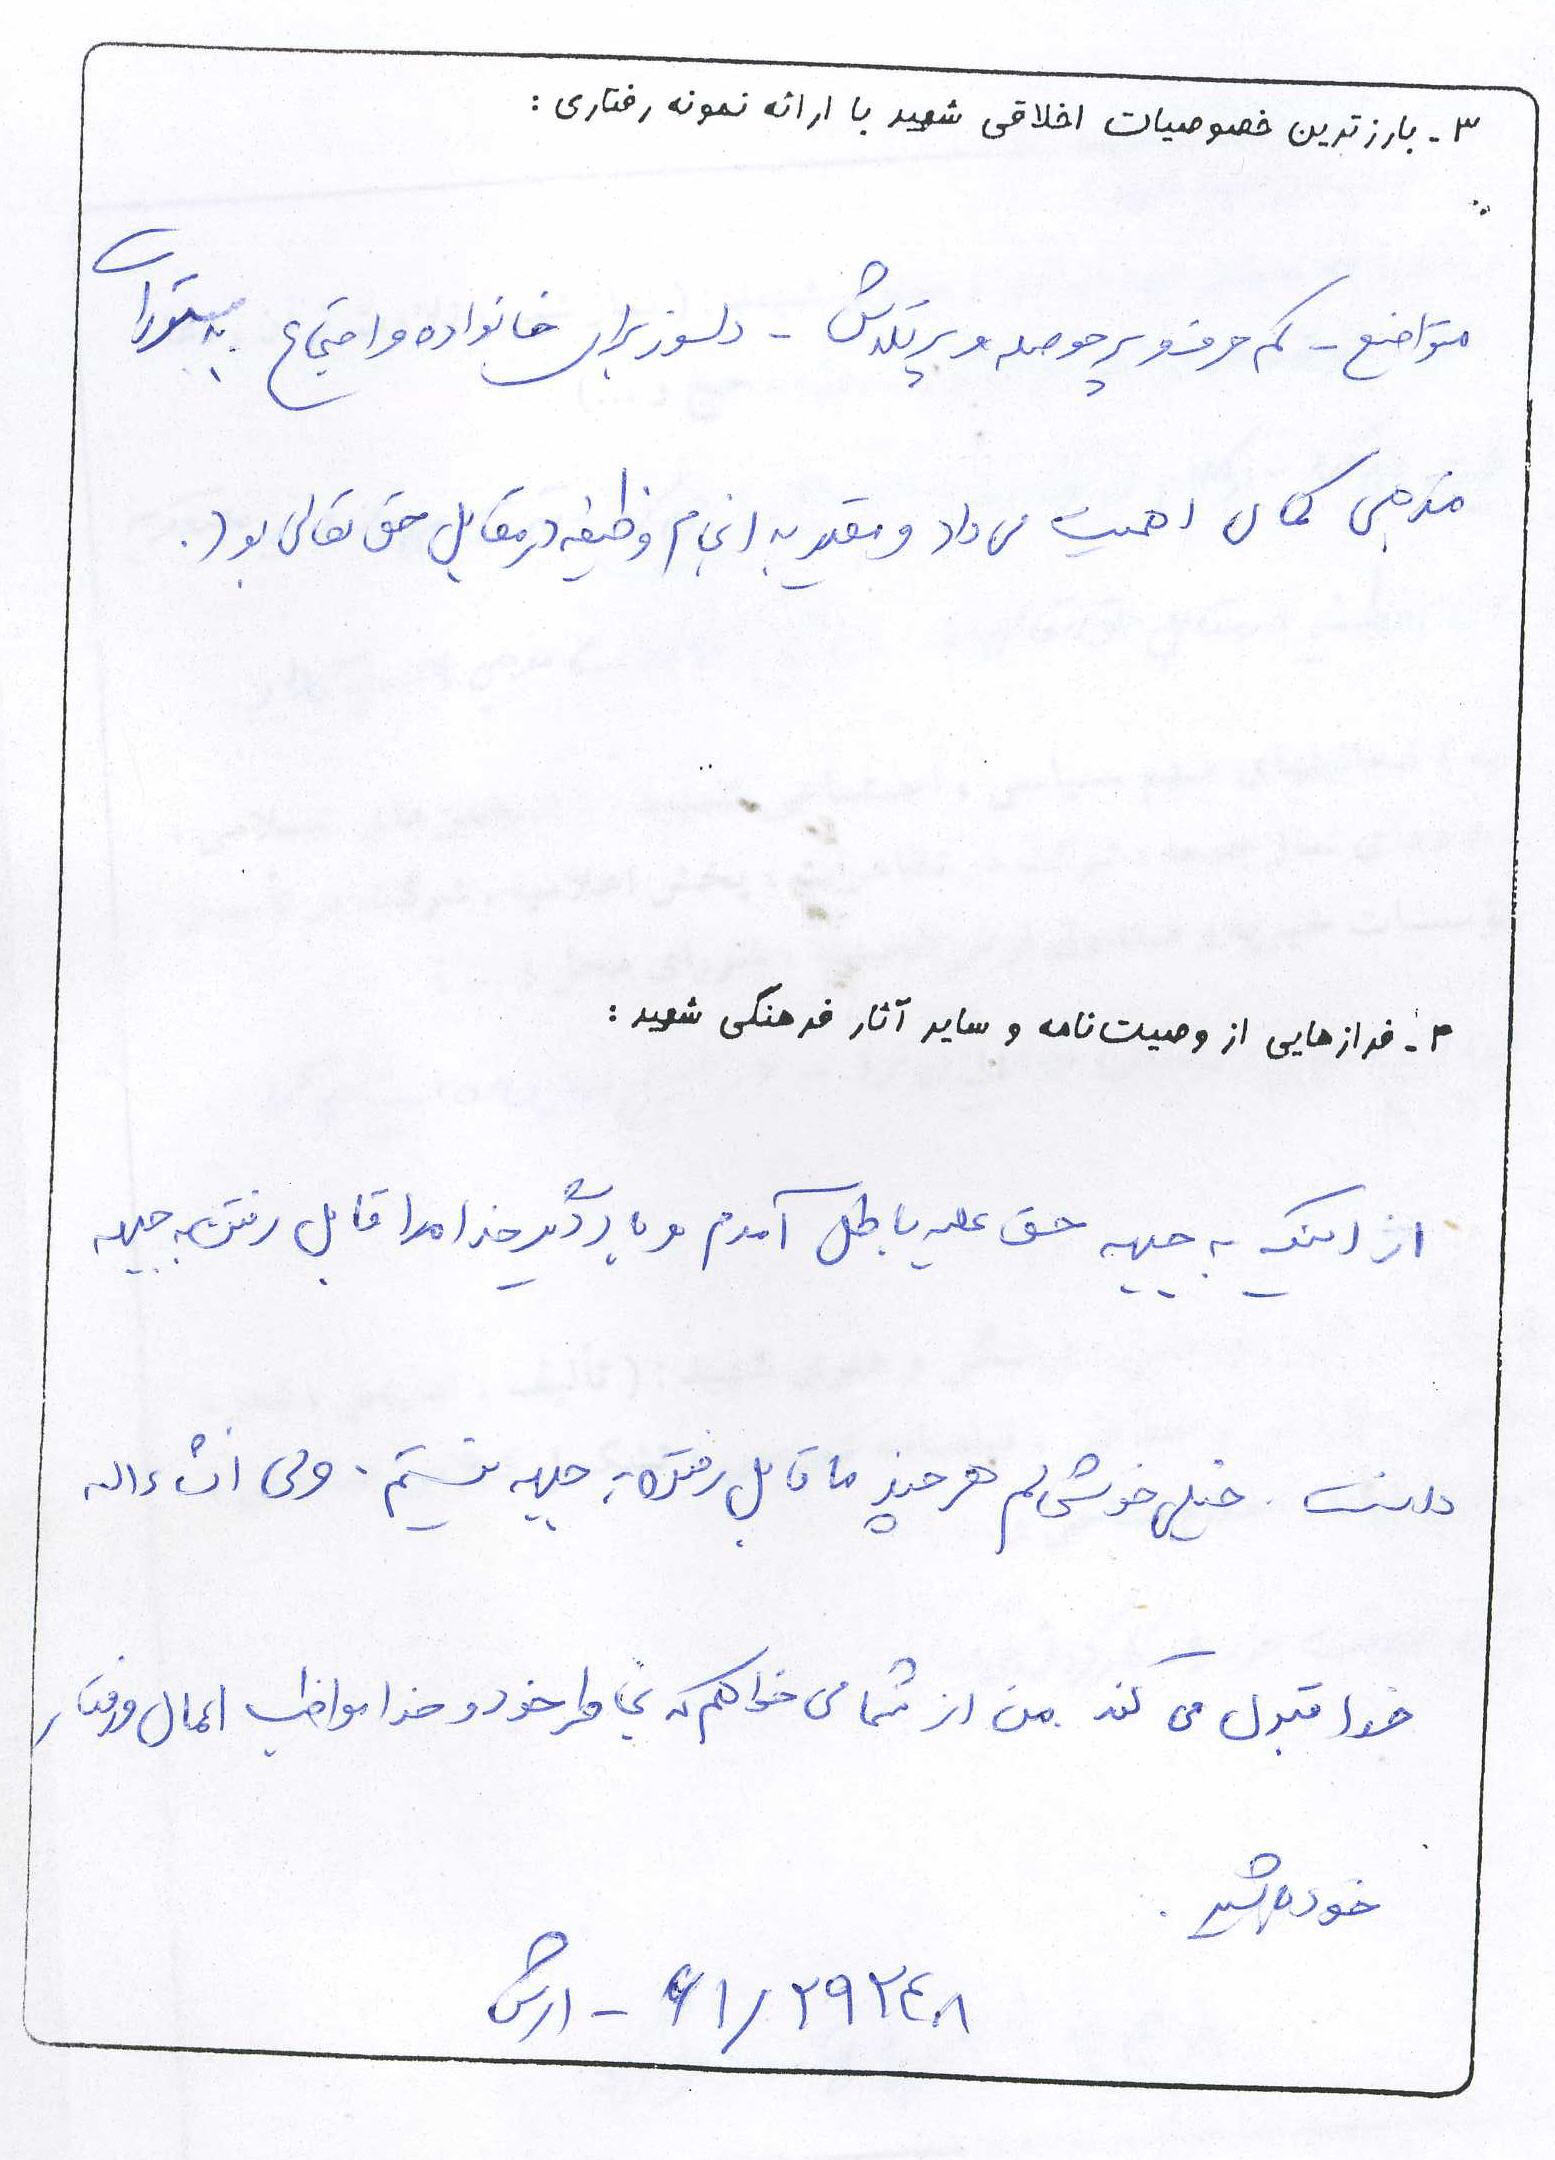 ۳- بارزترین خصوصیات اخلاقی شهید با ارائه نمونه رفتاری :
متواضع - کم حرف و پرحوصله و پرتلاش - دلسوز برای خانواده و اجتماع به دستورات
مذهبی کمال اهمیت می داد و مقید به انجام وظیفه در مقابل حق تعالی بود.
۴- فرازهایی از وصیت نامه و سایر آثار فرهنگی شهید :
از اینکه به جبهه حق علیه باطل آمدم و بار دگر خدا مرا قابل رفتن به جبهه
دانست . خیلی خوشحالم هر چند ما قابل رفتن به جبهه نیستیم . ولی انشاءاله
خدا قبول می کند . من از شما می خواهم که بخاطر خود و خدا مواظب اعمال و رفتار
خود باشید .
۶۱/۲۹۲۴۰۸ - ارتش